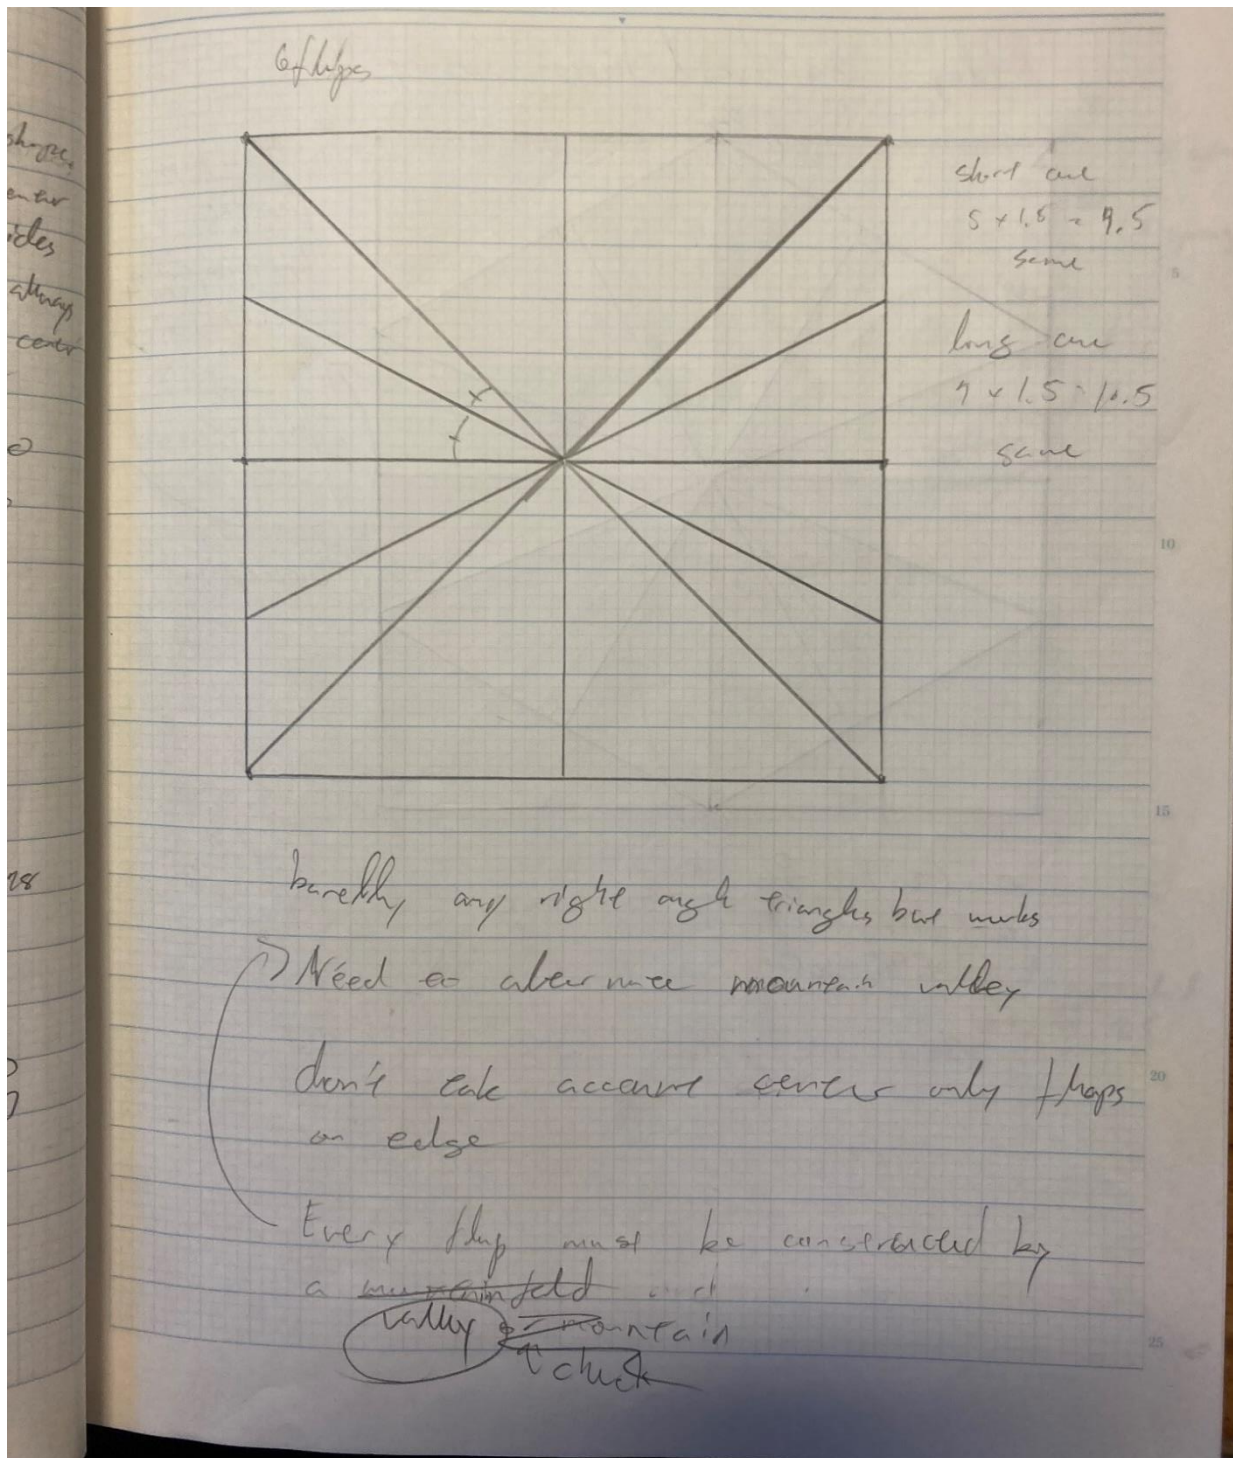 6 flaps
shape,
center
sides
always
center
short one
5 x 1.5 = 9.5
same
long one
7 x 1.5 = 10.5
same
5
10
15
20
25
28
barely any right angle triangles but works
Need to alternate mountain valley
don't take account center only flaps
on edge
Every flap must be constructed by
a mountain fold
valley or mountain
↑ check